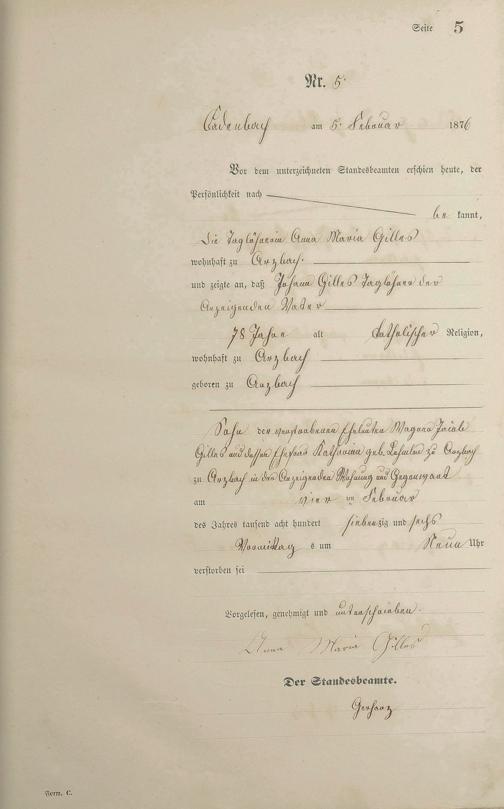 Seite 5
Nr. 5.
Cadenbach am 5. Februar 1876
Vor dem unterzeichneten Standesbeamten erschien heute, der
Persönlichkeit nach
be kannt,
die Taglöhnerin Anna Maria Gilles
wohnhaft zu Arzbach.
und zeigte an, daß Johann Gilles Taglöhner der
Anzeigenden Vater
78 Jahre alt katholischer Religion,
wohnhaft zu Arzbach
geboren zu Arzbach
Sohn der verstorbenen Eheleuten Wagner
Gilles und dessen Ehefrau Katharina geb. zu Arzbach
zu Arzbach in der Anzeigenden Wohnung und Gegenwart
am vier ten Februar
des Jahres tausend acht hundert siebenzig und sechs
Vormittag s um Neun Uhr
verstorben sei
Vorgelesen, genehmigt und unterschrieben.
Anna Maria Gilles
Der Standesbeamte.
Gerharz
Form. C.